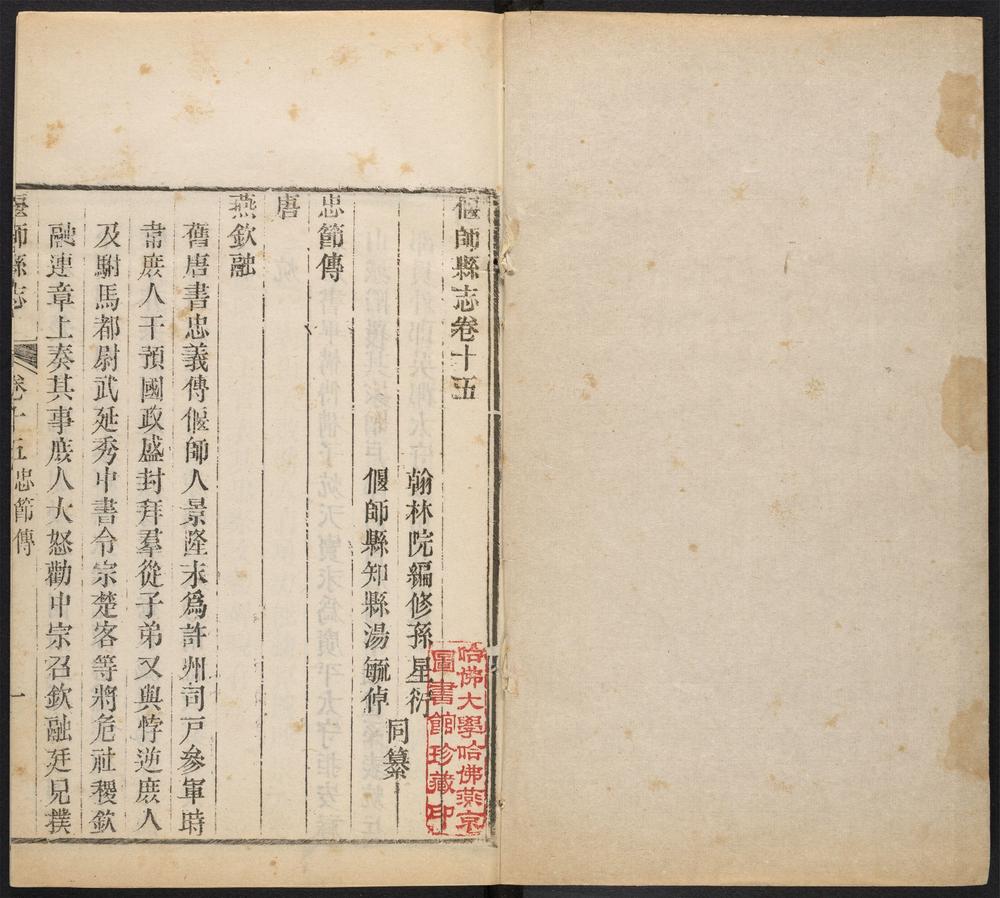 偃師縣志卷十五
翰林院編修孫星衍
偃師縣知縣湯毓倬
同纂
忠節傳
唐
燕欽融
舊唐書忠義傳偃師人景隆末爲許州司戸參軍時
韋庶人干預國政盛封拜羣從子弟又與悖逆庶人
及駙馬都尉武延秀中書令宗楚客等將危社稷欽
融連章上奏其事庶人大怒勸中宗召欽融廷見撲
偃師縣志
卷十五忠節傳
一
哈佛大學哈佛燕京
圖書館珍藏印